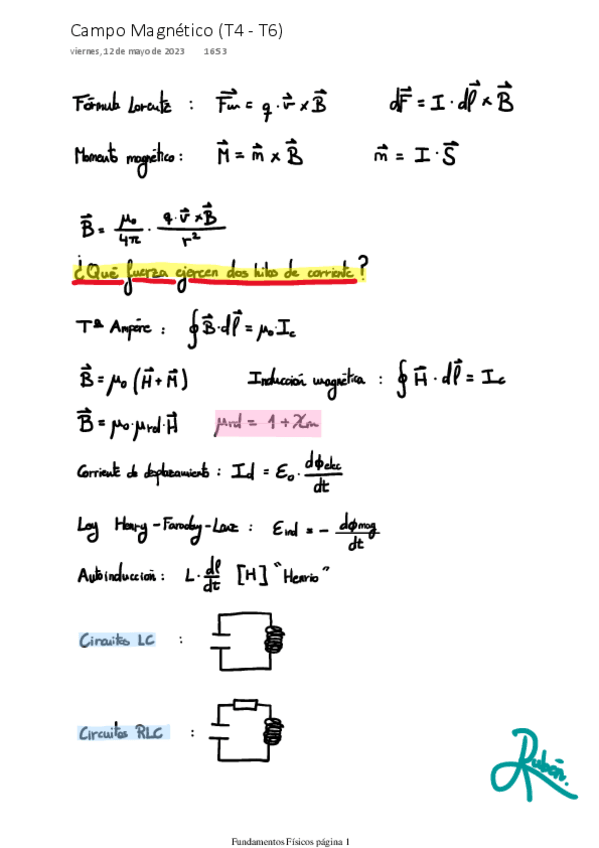 Campo Magnético (T4 - T6)
viernes, 12 de mayo de 2023 16:53
Fórmula Lorentz : F⃗m = q · v⃗ × B⃗ dF⃗ = I · dl⃗ × B⃗
Momento magnético : M⃗ = m⃗ × B⃗ m⃗ = I · S⃗
B⃗ = μ₀/4π · q · v⃗ × B⃗/r²
¿Qué fuerza ejercen dos hilos de corriente?
Tª Ampére : ∮ B⃗ · dl⃗ = μ₀ · Ic
B⃗ = μ₀ (H⃗ + M⃗) Inducción magnética : ∮ H⃗ · dl⃗ = Ic
B⃗ = μ₀ · μrel · H⃗ μrel = 1 + χm
Corriente de desplazamiento : Id = ε₀ · dϕelec/dt
Ley Henry - Faraday - Lenz : εind = - dϕmag/dt
Autoinducción : L · dI/dt [H] "Henrio"
Circuitos LC :
Circuitos RLC :
Rubén.
Fundamentos Físicos página 1